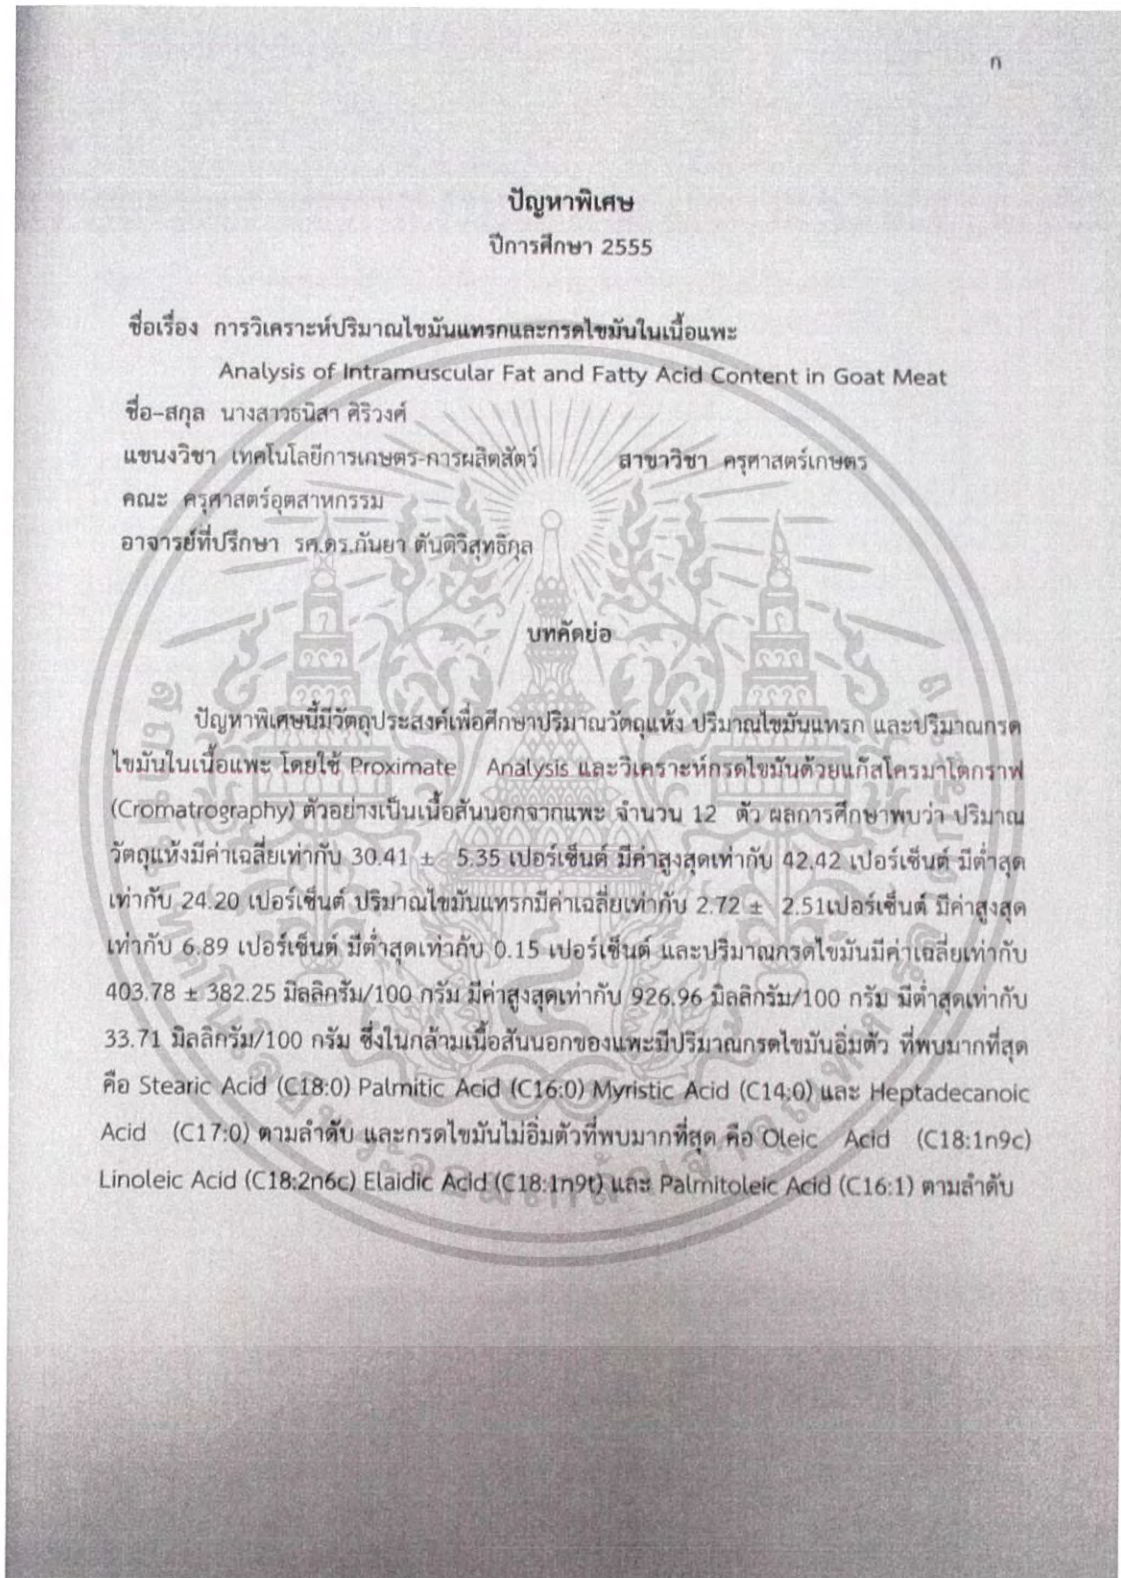 ก
ปัญหาพิเศษ
ปีการศึกษา 2555
ชื่อเรื่อง การวิเคราะห์ปริมาณไขมันแทรกและกรดไขมันในเนื้อแพะ
Analysis of Intramuscular Fat and Fatty Acid Content in Goat Meat
ชื่อ-สกุล นางสาวธนิสา ศิริวงศ์
แขนงวิชา เทคโนโลยีการเกษตร-การผลิตสัตว์ สาขาวิชา ครุศาสตร์เกษตร
คณะ ครุศาสตร์อุตสาหกรรม
อาจารย์ที่ปรึกษา รศ.ดร.กันยา ตันติวิสุทธิกุล
บทคัดย่อ
ปัญหาพิเศษนี้มีวัตถุประสงค์เพื่อศึกษาปริมาณวัตถุแห้ง ปริมาณไขมันแทรก และปริมาณกรด
ไขมันในเนื้อแพะ โดยใช้ Proximate Analysis และวิเคราะห์กรดไขมันด้วยแก๊สโครมาโตกราฟ
(Cromatrography) ตัวอย่างเป็นเนื้อสันนอกจากแพะ จำนวน 12 ตัว ผลการศึกษาพบว่า ปริมาณ
วัตถุแห้งมีค่าเฉลี่ยเท่ากับ 30.41 ± 5.35 เปอร์เซ็นต์ มีค่าสูงสุดเท่ากับ 42.42 เปอร์เซ็นต์ มีต่ำสุด
เท่ากับ 24.20 เปอร์เซ็นต์ ปริมาณไขมันแทรกมีค่าเฉลี่ยเท่ากับ 2.72 ± 2.51เปอร์เซ็นต์ มีค่าสูงสุด
เท่ากับ 6.89 เปอร์เซ็นต์ มีต่ำสุดเท่ากับ 0.15 เปอร์เซ็นต์ และปริมาณกรดไขมันมีค่าเฉลี่ยเท่ากับ
403.78 ± 382.25 มิลลิกรัม/100 กรัม มีค่าสูงสุดเท่ากับ 926.96 มิลลิกรัม/100 กรัม มีต่ำสุดเท่ากับ
33.71 มิลลิกรัม/100 กรัม ซึ่งในกล้ามเนื้อสันนอกของแพะมีปริมาณกรดไขมันอิ่มตัว ที่พบมากที่สุด
คือ Stearic Acid (C18:0) Palmitic Acid (C16:0) Myristic Acid (C14:0) และ Heptadecanoic
Acid (C17:0) ตามลำดับ และกรดไขมันไม่อิ่มตัวที่พบมากที่สุด คือ Oleic Acid (C18:1n9c)
Linoleic Acid (C18:2n6c) Elaidic Acid (C18:1n9t) และ Palmitoleic Acid (C16:1) ตามลำดับ